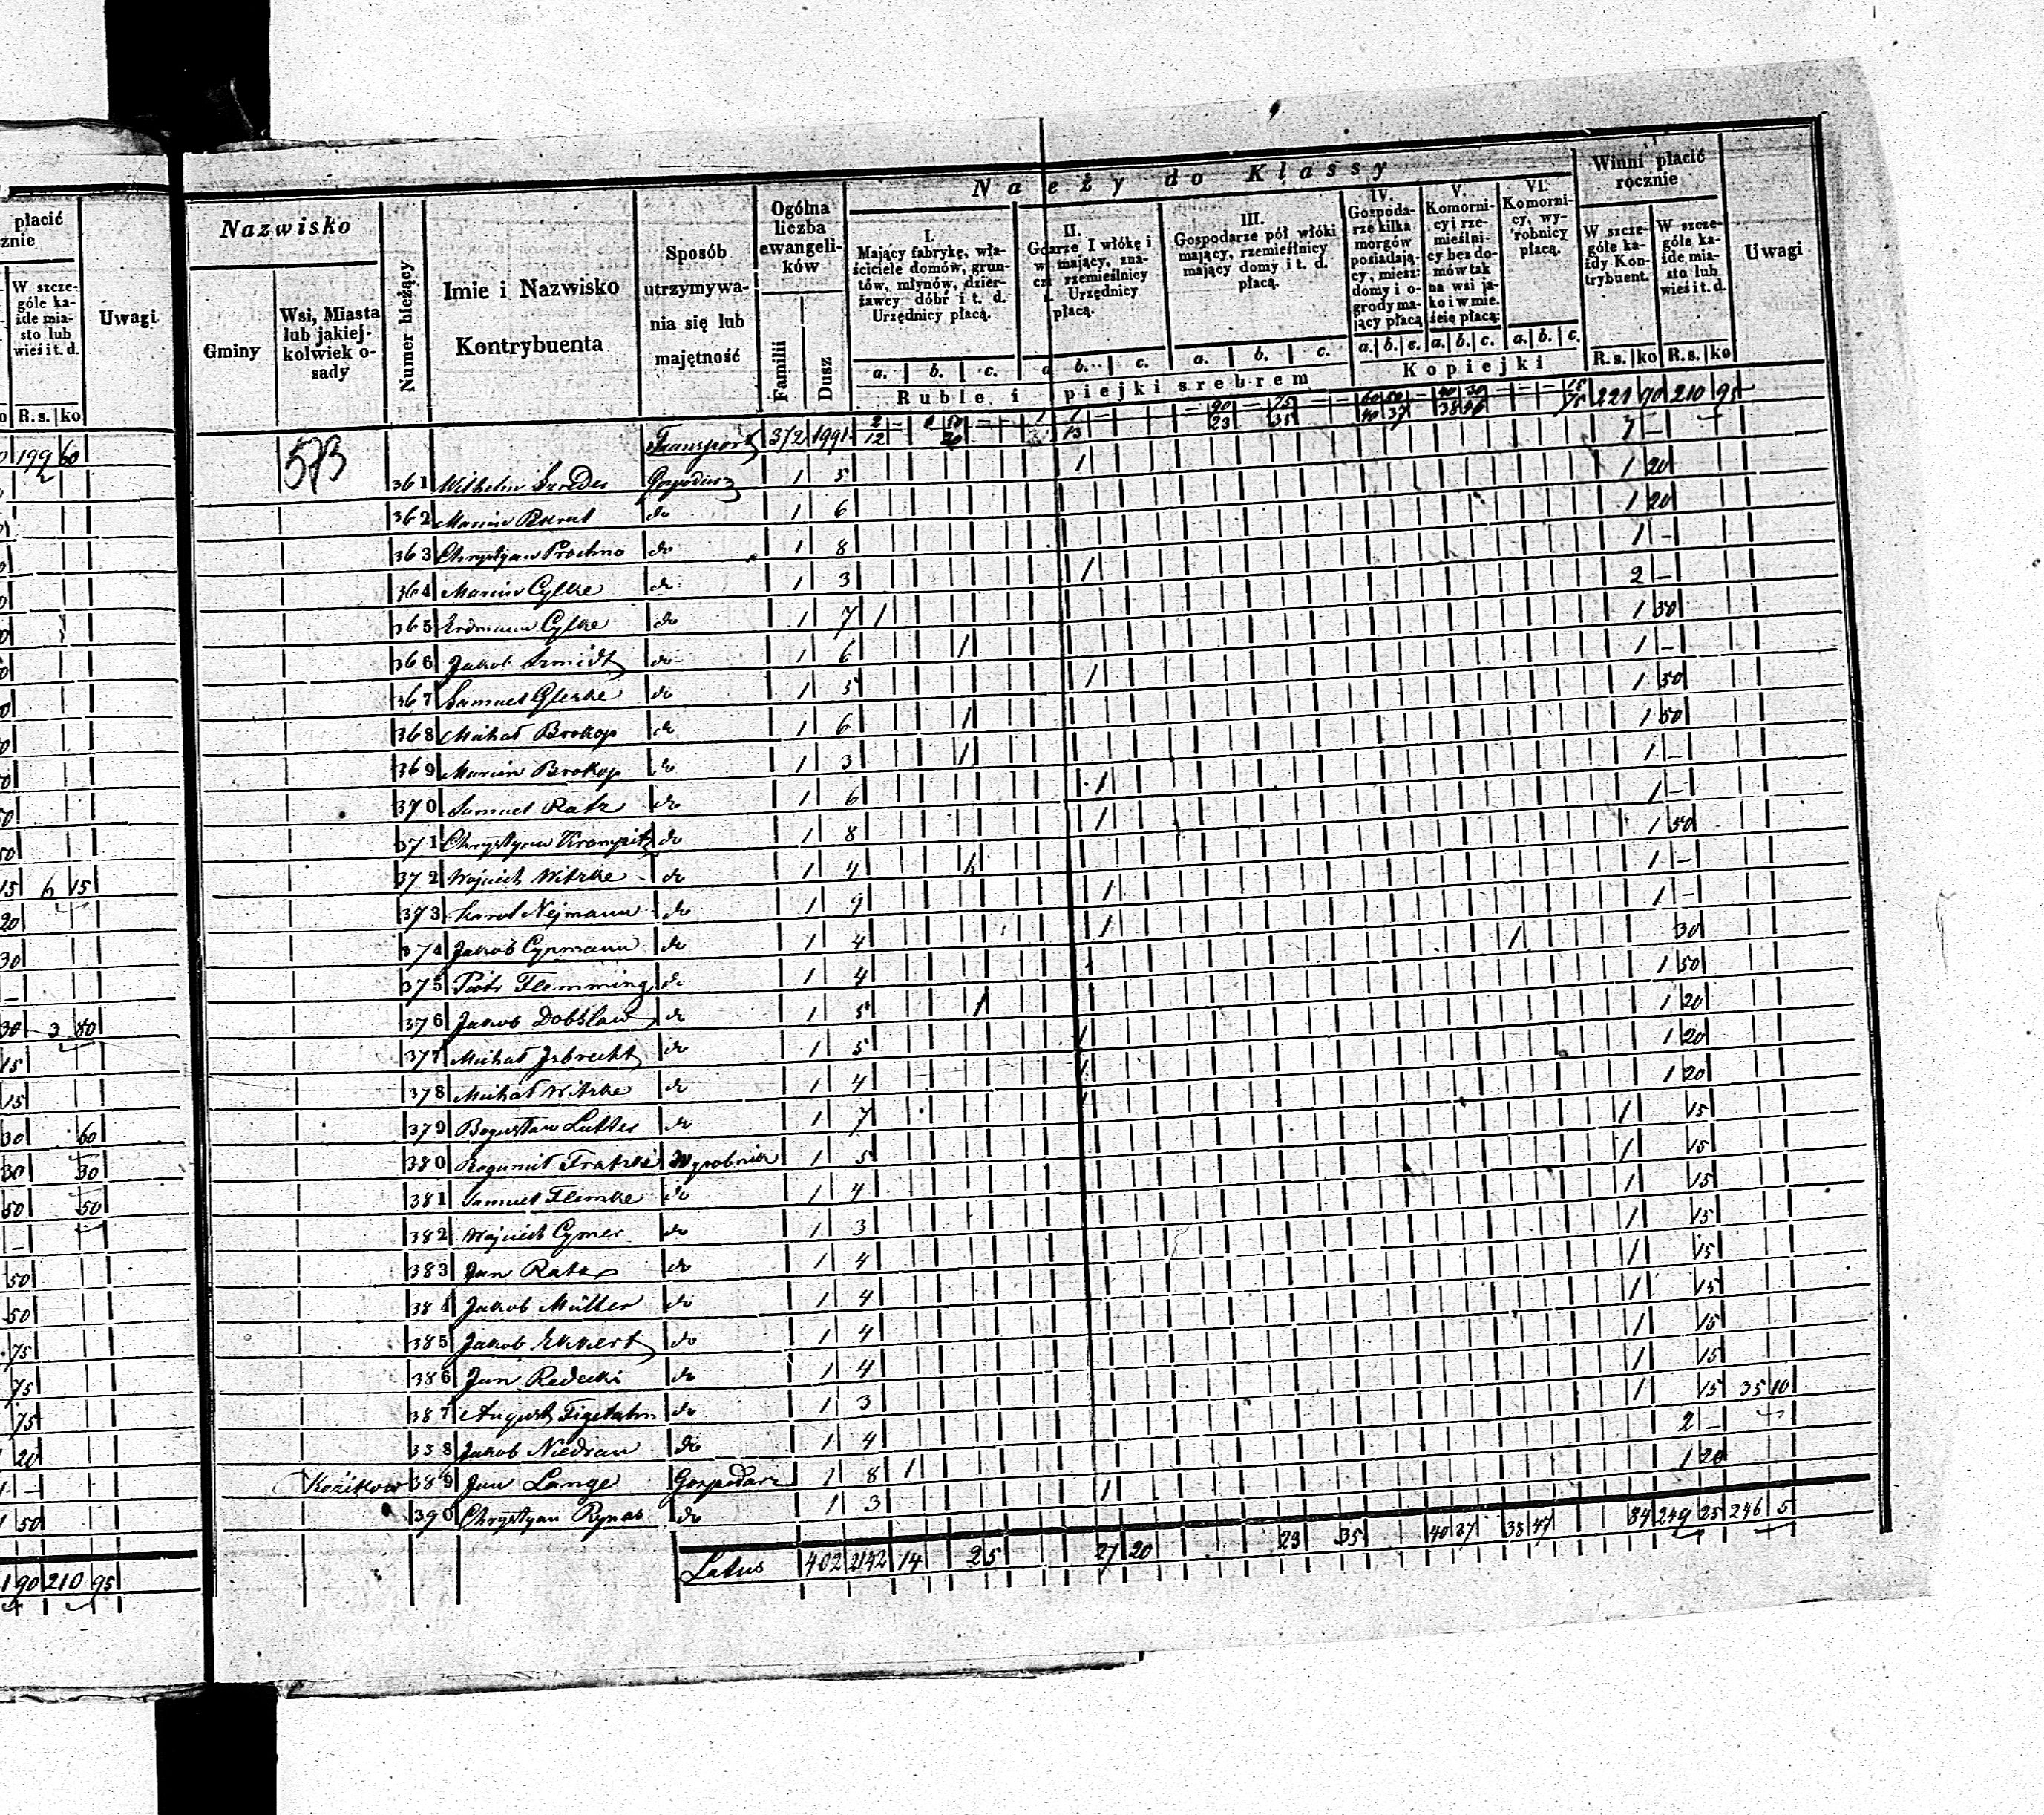 płacić
znie
W szcze-
góle ka-
żde mia-
sto lub
wieś i t. d.
Uwagi
R. s. ko
199 60
15 6 15
20
30
30 3 80
15
15
30 60
30 30
50 50
50
50
75
75
75
20
50
1 90 210 95
Nazwisko
Gminy
Wsi, Miasta
lub jakiej-
kolwiek o-
sady
Numer bieżący
Imie i Nazwisko
Kontrybuenta
Sposób
utrzymywa-
nia się lub
majętność
Ogólna
liczba
ewangeli-
ków
Familii
Dusz
Należy do Klassy
I.
Mający fabrykę, wła-
ściciele domów, grun-
tów, młynów, dzier-
żawcy dóbr i t. d.
Urzędnicy płacą.
II.
Gdarze I włókę i
mający, zna-
rzemieślnicy
Urzędnicy
płacą.
III.
Gospodarze pół włóki
mający, rzemieślnicy
mający domy i t. d.
płacą.
IV.
Gospoda-
rze kilka
morgów
posiadają-
cy, miesz:
domy i o-
grody ma-
jący płacą
V.
Komorni-
cy i rze-
mieślni-
cy bez do-
mów tak
na wsi ja-
ko i w mie.
ście płacą:
VI.
Komorni-
cy, wy-
robnicy
płacą.
a. b. c. a. b. c. a. b. c. a. b. c. a. b. c.
Ruble i piejki srebrem
Kopiejki
Winni płacić
rocznie
W szcze-
góle ka-
żdy Kon-
trybuent.
W szcze-
góle ka-
żde mia-
sto lub
wieś i t. d.
R. s. ko R. s. ko
Uwagi
573
Transport 372 1991 221 90 210 95
361 Wilhelm Szreder Gospodarz 1 5 1 1 —
362 Marcin do 1 6 1 20
363 Chrystyan Prochno do 1 8 1 20
364 Marcin Cylke do 1 3 1 1 —
365 Erdmann Cylke do 1 7 1 2 —
366 Jakob Szmidt do 1 6 1 1 50
367 Samuel Gleske do 1 5 1 1 —
368 Michał Brokop do 1 6 1 1 50
369 Marcin Brokop do 1 3 1 1 50
370 Samuel Ratz do 1 6 1 1 —
371 Chrystyan Krampitz do 1 8 1 1 —
372 Wojciech Witzke do 1 4 1 1 50
373 Karol Nejmann do 1 9 1 1 —
374 Jakob Cypmann do 1 4 1 1 —
375 Piotr Flemming do 1 4 1 30
376 Jakob Dobslaw do 1 5 1 1 50
377 Michał Jsbrecht do 1 5 1 1 20
378 Michał Witzke do 1 4 1 1 20
379 Bogusław Lutter do 1 7 1 1 20
380 Bogumił Wyrobnik 1 5 1 15
381 Samuel Flemke do 1 4 1 15
382 Wojciech Cymer do 1 3 1 15
383 Jan Ratz do 1 4 1 15
384 Jakob Müller do 1 4 1 15
385 Jakob Ekkert do 1 4 1 15
386 Jan Redecki do 1 4 1 15
387 August do 1 3 1 15
388 Jakob Niedrau do 1 4 1 15 35 10
389 Jan Lange Gospodarz 1 8 1 2 —
390 Chrystyan Rynas do 1 3 1 1 20
Latus 402 2142 14 25 27 20 23 35 40 37 38 47 84 249 25 246 5